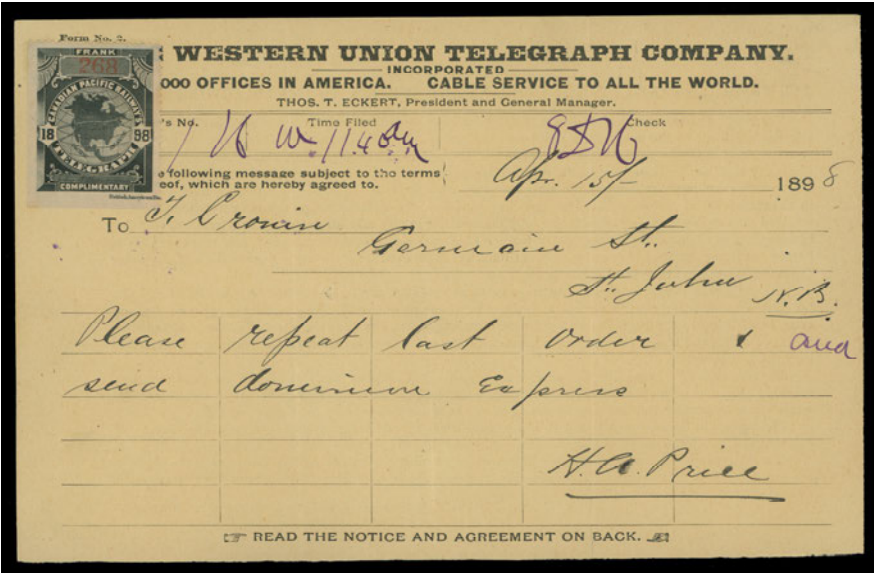 Form No. 2.
FRANK
268
CANADIAN PACIFIC RAILWAY'S
18 98
TELEGRAPH
COMPLIMENTARY
WESTERN UNION TELEGRAPH COMPANY.
INCORPORATED
000 OFFICES IN AMERICA. CABLE SERVICE TO ALL THE WORLD.
THOS. T. ECKERT, President and General Manager.
's No. Time Filed Check
11.40
e following message subject to the terms
eof, which are hereby agreed to.
Apr. 15/- 1898
To T. Cronin
Germain St.
St. John N.B.
Please repeat last order & and
send dominion Express
H. A. Price
READ THE NOTICE AND AGREEMENT ON BACK.